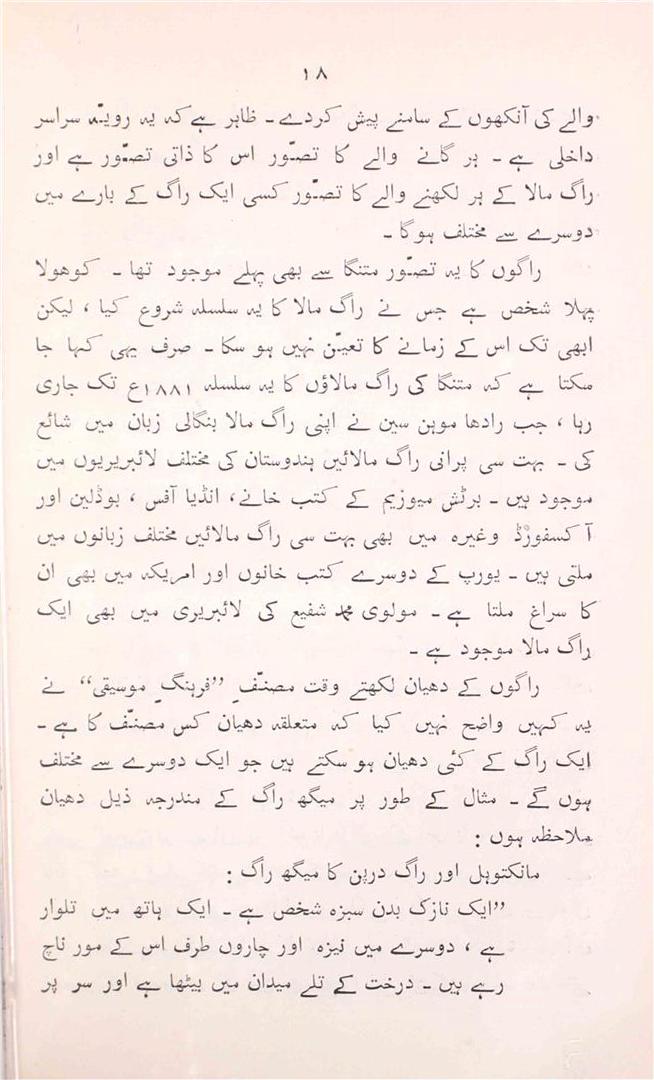 ۱۸
والے کی آنکھوں کے سامنے پیش کردے ۔ ظاہر ہے کہ یہ رویّہ سراسر
داخلی ہے ۔ ہر گانے والے کا تصوّر اس کا ذاتی تصوّر ہے اور
راگ مالا کے ہر لکھنے والے کا تصوّر کسی ایک راگ کے بارے میں
دوسرے سے مختلف ہوگا ۔
راگوں کا یہ تصوّر متنگا سے بھی پہلے موجود تھا ۔ کوھولا
پہلا شخص ہے جس نے راگ مالا کا یہ سلسلہ شروع کیا ، لیکن
ابھی تک اس کے زمانے کا تعیّن نہیں ہو سکا ۔ صرف یہی کہا جا
سکتا ہے کہ متنگا کی راگ مالاؤں کا یہ سلسلہ ۱۸۸۱ع تک جاری
رہا ، جب رادھا موہن سین نے اپنی راگ مالا بنگالی زبان میں شائع
کی ۔ بہت سی پرانی راگ مالائیں ہندوستان کی مختلف لائبریریوں میں
موجود ہیں ۔ برٹش میوزیم کے کتب خانے ، انڈیا آفس ، بوڈلین اور
آکسفورڈ وغیرہ میں بھی بہت سی راگ مالائیں مختلف زبانوں میں
ملتی ہیں ۔ یورپ کے دوسرے کتب خانوں اور امریکہ میں بھی ان
کا سراغ ملتا ہے ۔ مولوی محمد شفیع کی لائبریری میں بھی ایک
راگ مالا موجود ہے ۔
راگوں کے دھیان لکھتے وقت مصنّفِ ”فرہنگِ موسیقی“ نے
یہ کہیں واضح نہیں کیا کہ متعلقہ دھیان کس مصنّف کا ہے ۔
ایک راگ کے کئی دھیان ہو سکتے ہیں جو ایک دوسرے سے مختلف
ہوں گے ۔ مثال کے طور پر میگھ راگ کے مندرجہ ذیل دھیان
ملاحظہ ہوں :
مانکتوہل اور راگ درپن کا میگھ راگ :
”ایک نازک بدن سبزہ شخص ہے ۔ ایک ہاتھ میں تلوار
ہے ، دوسرے میں نیزہ اور چاروں طرف اس کے مور ناچ
رہے ہیں ۔ درخت کے تلے میدان میں بیٹھا ہے اور سر پر